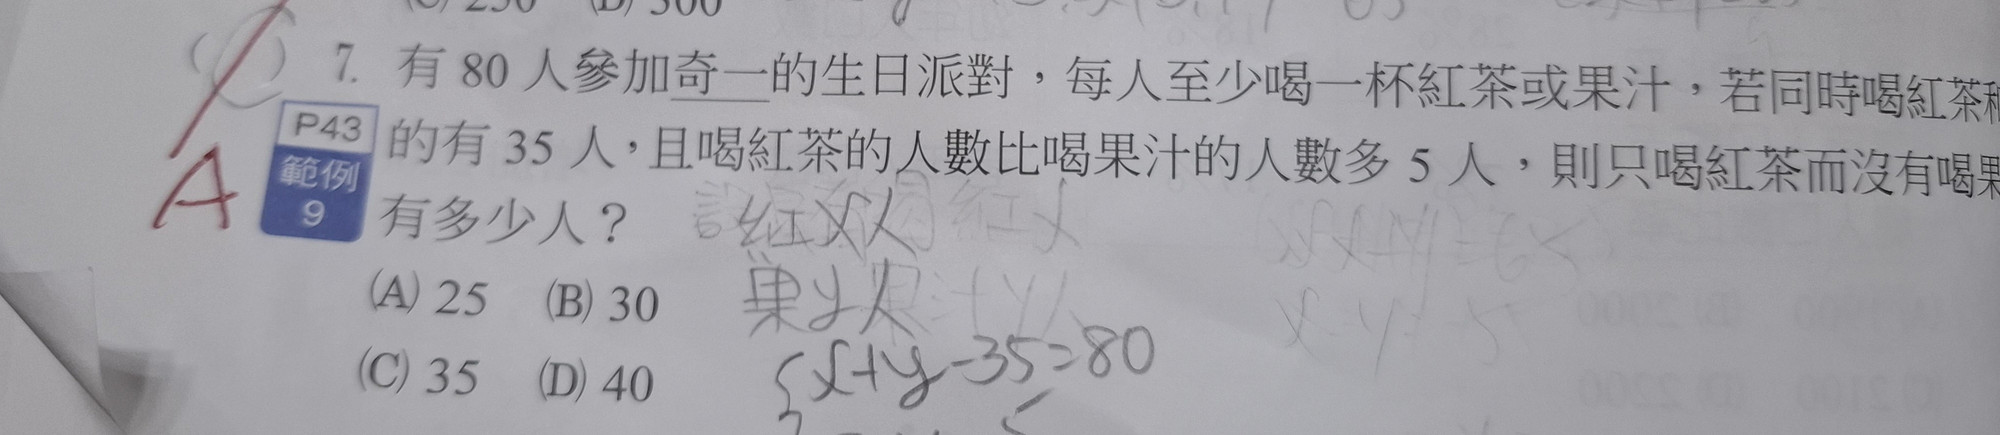 (C) 250 (D) 300
7. 有 80 人參加奇一的生日派對，每人至少喝一杯紅茶或果汁，若同時喝紅茶
P43 的有 35 人，且喝紅茶的人數比喝果汁的人數多 5 人，則只喝紅茶而沒有喝果
範例
9
A
有多少人？ 紅x人
(A) 25 (B) 30 果y人
x+y-35=80
(C) 35 (D) 40